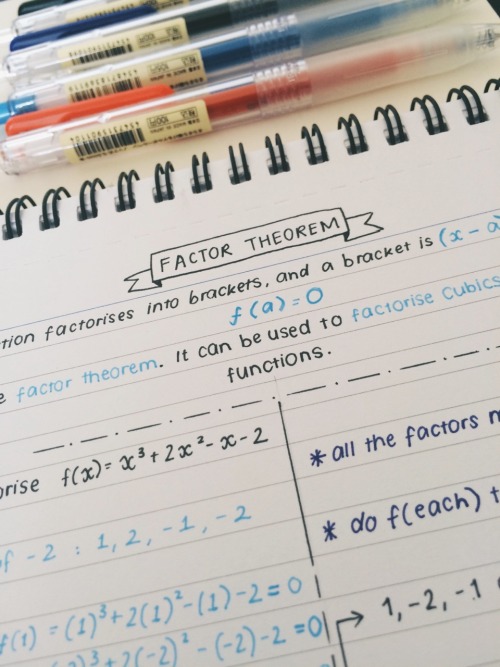 FACTOR THEOREM
tion factorises into brackets, and a bracket is (x - a
f(a) = 0
factor theorem. It can be used to factorise cubics
functions.
orise f(x) = x³ + 2x² - x - 2
* all the factors
of -2 : 1, 2, -1, -2
* do f(each)
f(1) = (1)³ + 2(1)² - (1) - 2 = 0
1, -2, -1
)³ + 2(-2)² - (-2) - 2 = 0